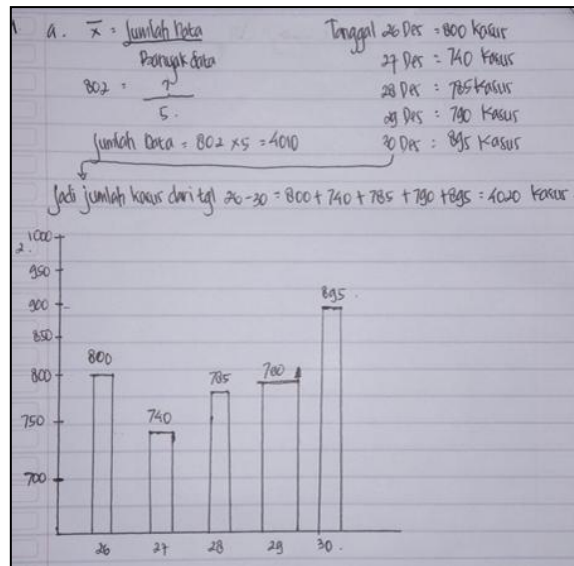 1. a. x̄ = Jumlah Data
Banyak data
802 = ?
5.
Jumlah Data = 802 x 5 = 4010
Tanggal 26 Des = 800 Kasus
27 Des = 740 Kasus
28 Des = 785 Kasus
29 Des = 790 Kasus
30 Des = 895 Kasus
Jadi jumlah kasus dari tgl 26-30 = 800 + 740 + 785 + 790 + 895 = 4020 Kasus
2.
1000
950
900
850
800
750
700
800
740
785
895
26 27 28 29 30.